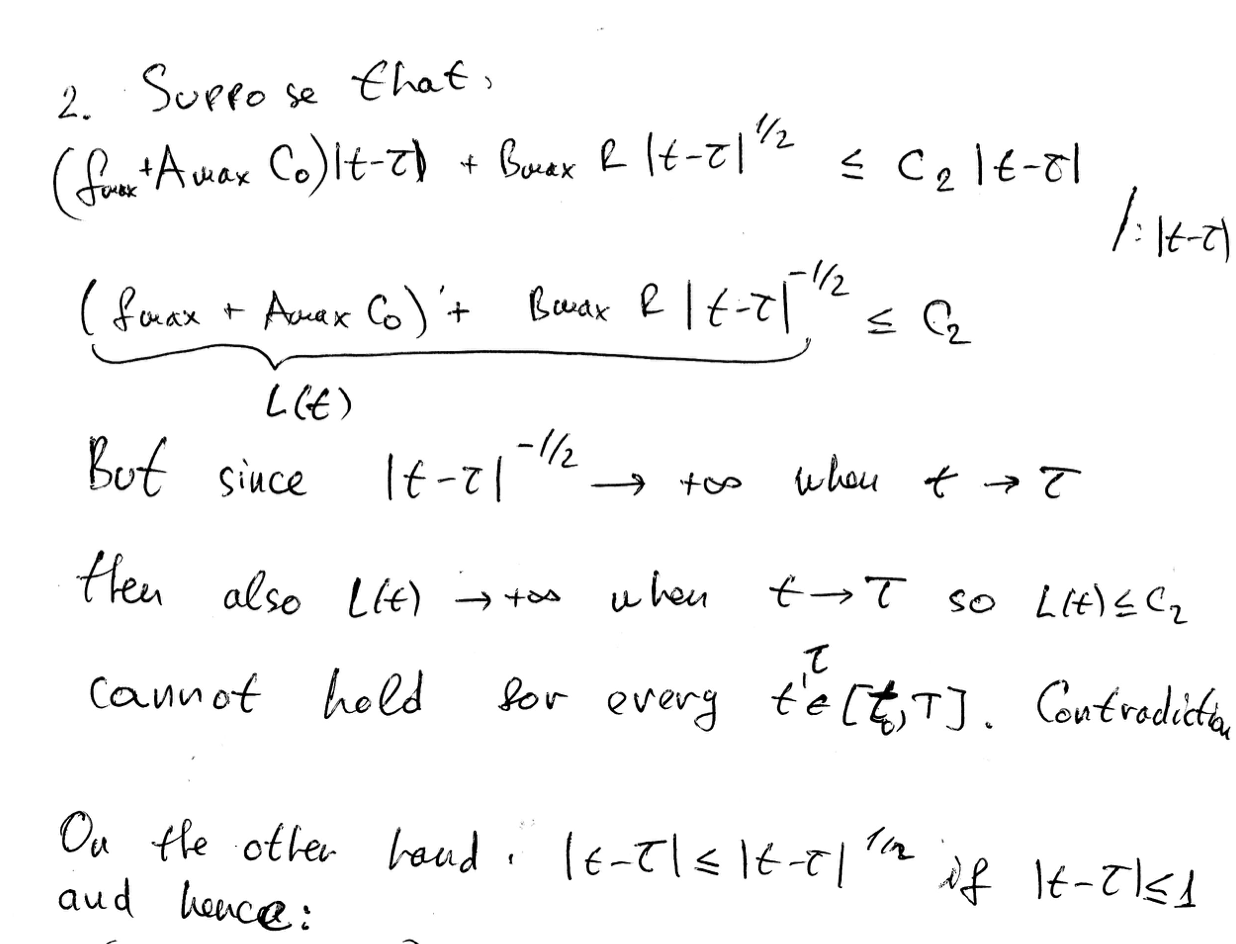 2. Suppose that,
(fmax + Amax C₀)|t-τ| + Bmax R |t-τ|^1/2 ≤ C₂ |t-τ|
/: |t-τ|
(fmax + Amax C₀) + Bmax R |t-τ|^-1/2 ≤ C₂
L(t)
But since |t-τ|^-1/2 → +∞ when t → τ
then also L(t) → +∞ when t → τ so L(t) ≤ C₂
τ
cannot hold for every t,∈[t₀,T]. Contradiction
On the other hand. |t-τ| ≤ |t-τ|^1/2 if |t-τ| ≤ 1
and hence: